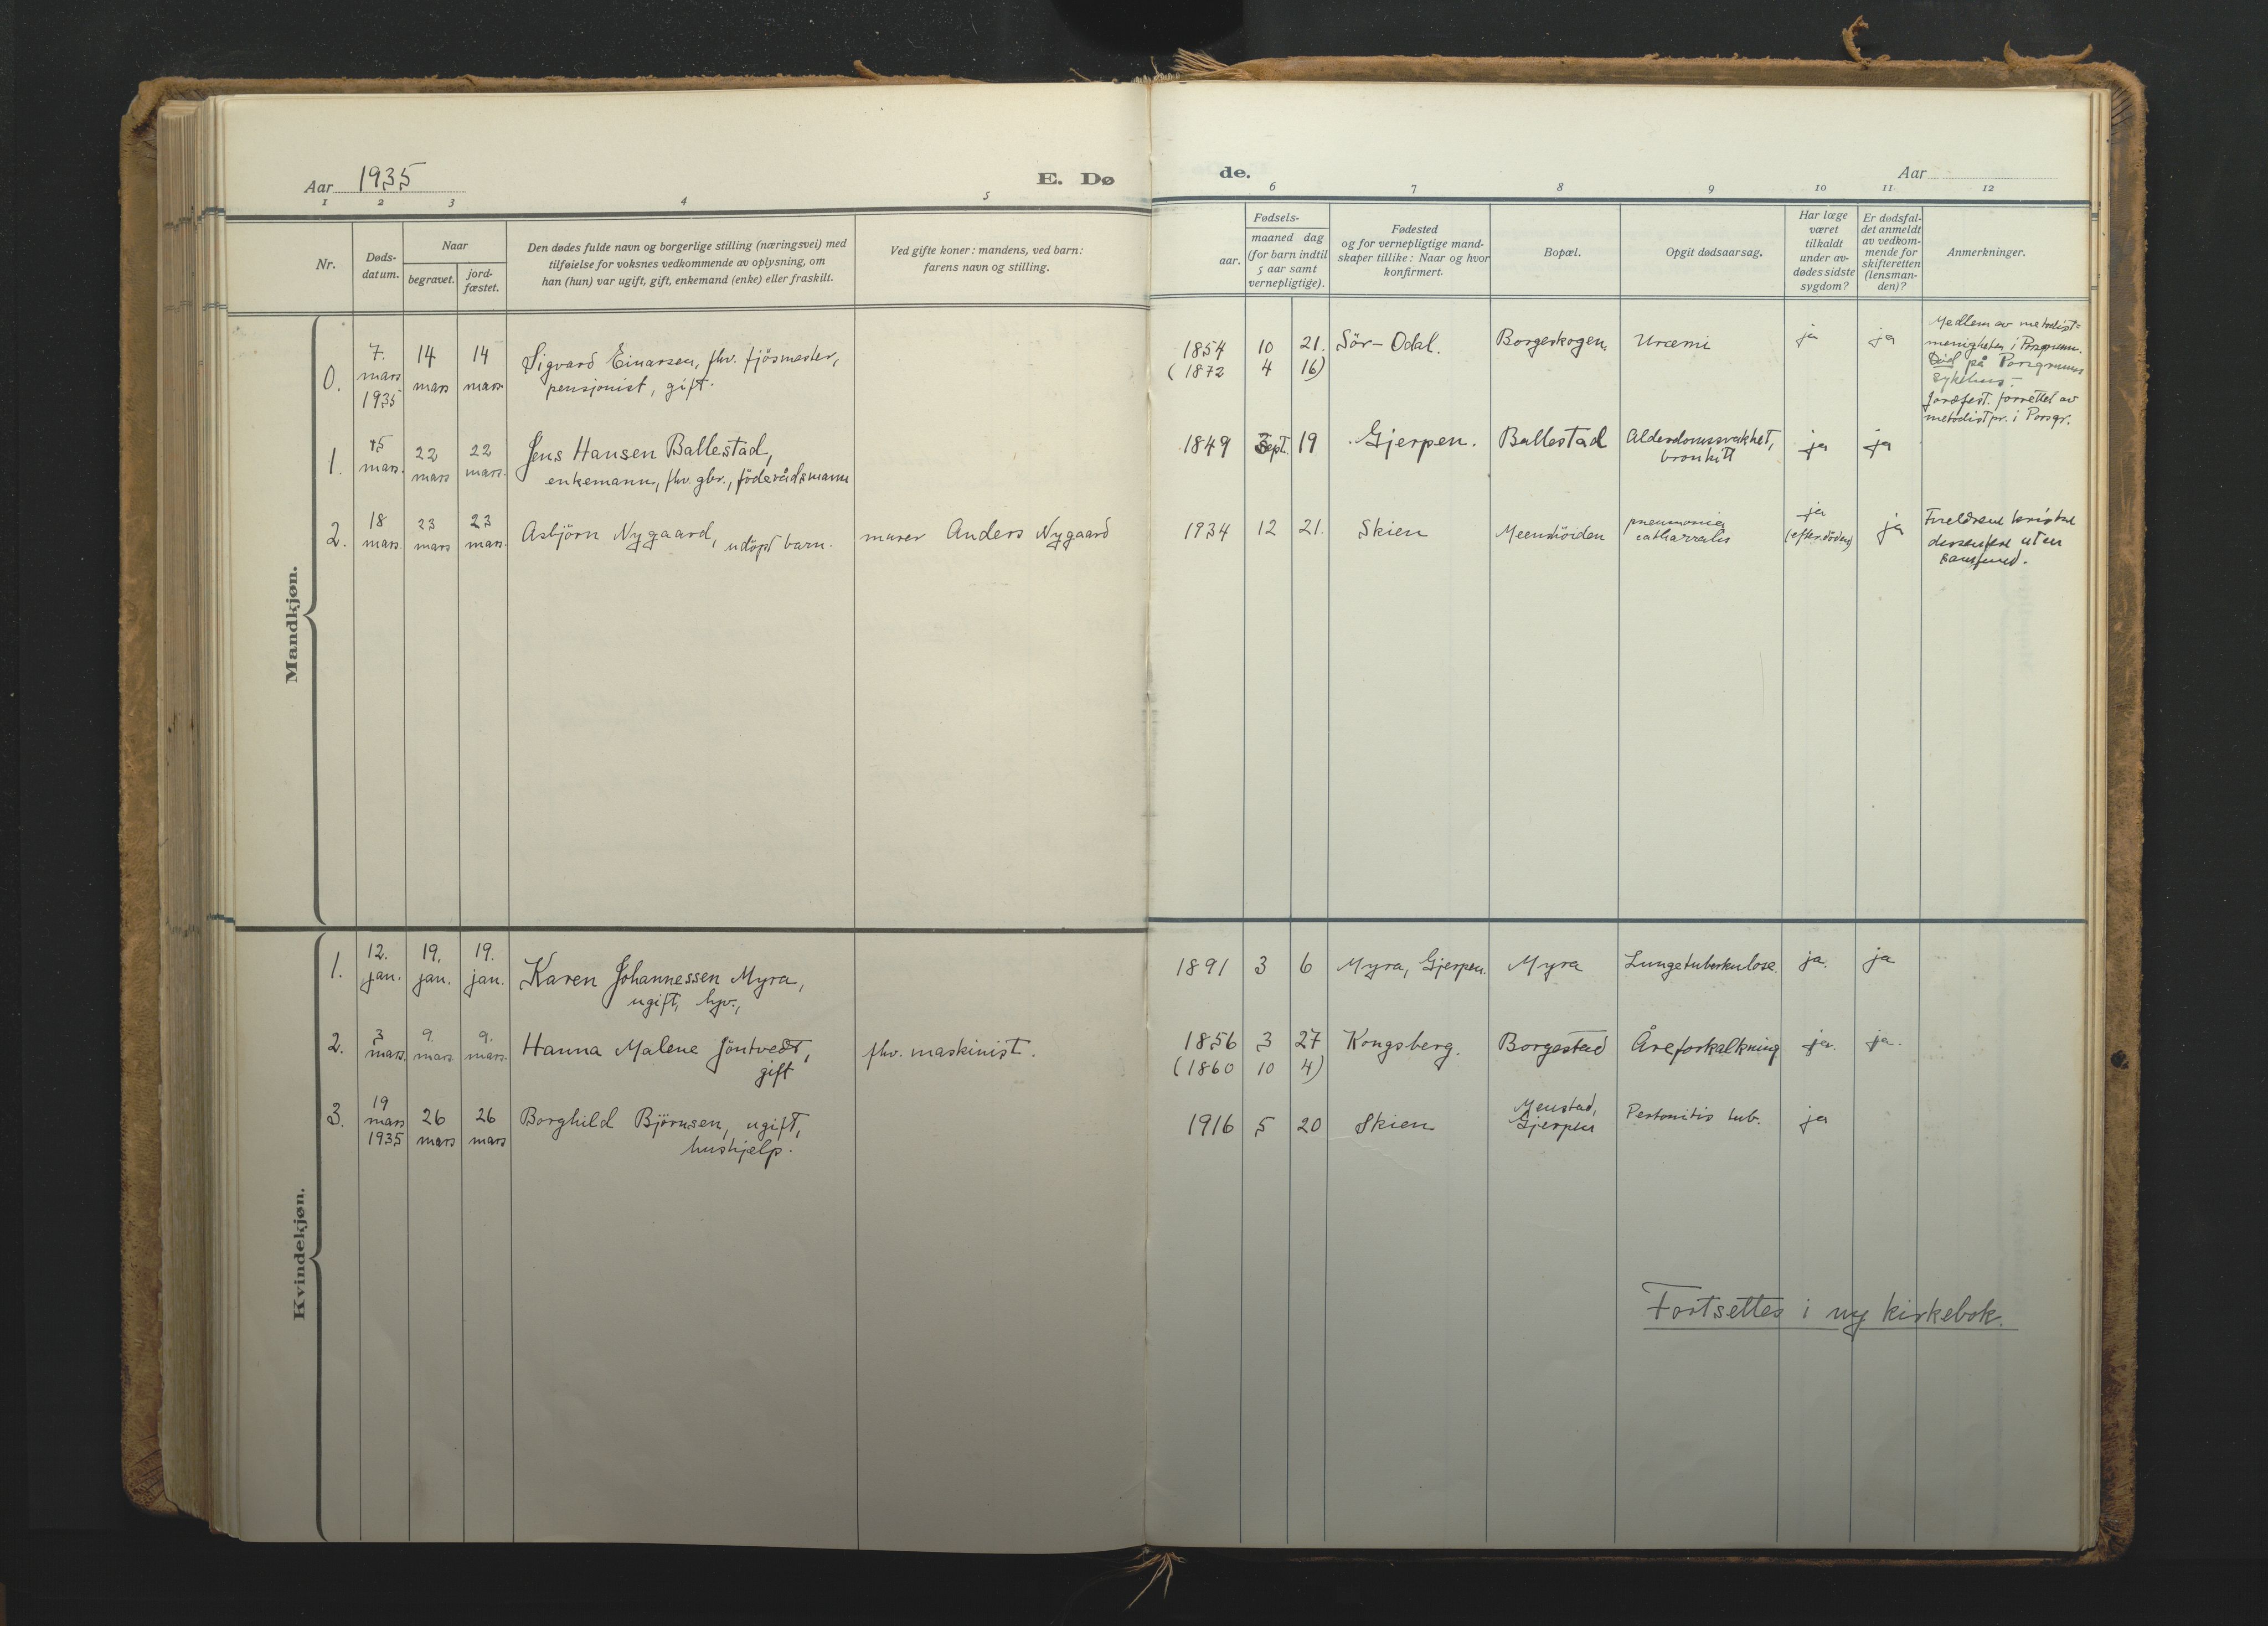 Aar 1935
E. Dø
de.
Aar
1 2 3 4 5 6 7 8 9 10 11 12
Nr.
Døds-
datum.
Naar
begravet.
jord-
fæstet.
Den dødes fulde navn og borgerlige stilling (næringsvei) med
tilføielse for voksnes vedkommende av oplysning, om
han (hun) var ugift, gift, enkemand (enke) eller fraskilt.
Ved gifte koner: mandens, ved barn:
farens navn og stilling.
Fødsels-
aar.
maaned dag
(for barn indtil
5 aar samt
vernepligtige).
Fødested
og for vernepligtige mand-
skaper tillike: Naar og hvor
konfirmert.
Bopæl.
Opgit dødsaarsag.
Har læge
været
tilkaldt
under av-
dødes sidste
sygdom?
Er dødsfal-
det anmeldt
av vedkom-
mende for
skifteretten
(lensman-
den)?
Anmerkninger.
Mandkjøn.
0.
7.
mars
1935
14
mars
14
mars
Sigvard Einarsen, fhv. fjösmester,
pensjonist, gift.
1854 10 21.
(1872 4 16)
Sör-Odal.
Borgeskogen.
Uræmi
ja
ja
Medlem av metodist-
menigheten i Porsgrunn.
Död på Porsgrunns
sykehus.-
Jordfest. forrettet av
metodistpr. i Porsgr.
1.
15
mars.
22
mars
22
mars.
Jens Hansen Ballestad,
enkemann, fhv. gbr., föderådsmann
1849 Sept. 19
Gjerpen.
Ballestad
Alderdomssvakhet,
bronkitt
ja
ja
2.
18
mars.
23
mars
23
mars.
Asbjörn Nygaard, udöpt barn.
murer Anders Nygaard
1934 12 21.
Skien
Meenshöiden
pneumonia
catharralis
ja
(efter döden)
ja
Foreldrene kristne
dissentere uten
samfund.
Kvindekjøn.
1.
12.
jan.
19.
jan.
19.
jan.
Karen Johannessen Myra,
ugift, hjv.,
1891 3 6
Myra, Gjerpen.
Myra
Lungetuberkulose.
ja.
ja
2.
3
mars.
9.
mars
9.
mars.
Hanna Malene Jöntvedt,
gift
fhv. maskinist.
1856 3 27
(1860 10 4)
Kongsberg.
Borgestad
Åreforkalkning
ja.
ja.
3.
19
mars
1935
26
mars
26
mars
Borghild Björnsen, ugift,
hushjelp.
1916 5 20
Skien
Menstad,
Gjerpen
Peritonitis tub.
ja
Fortsettes i ny kirkebok.